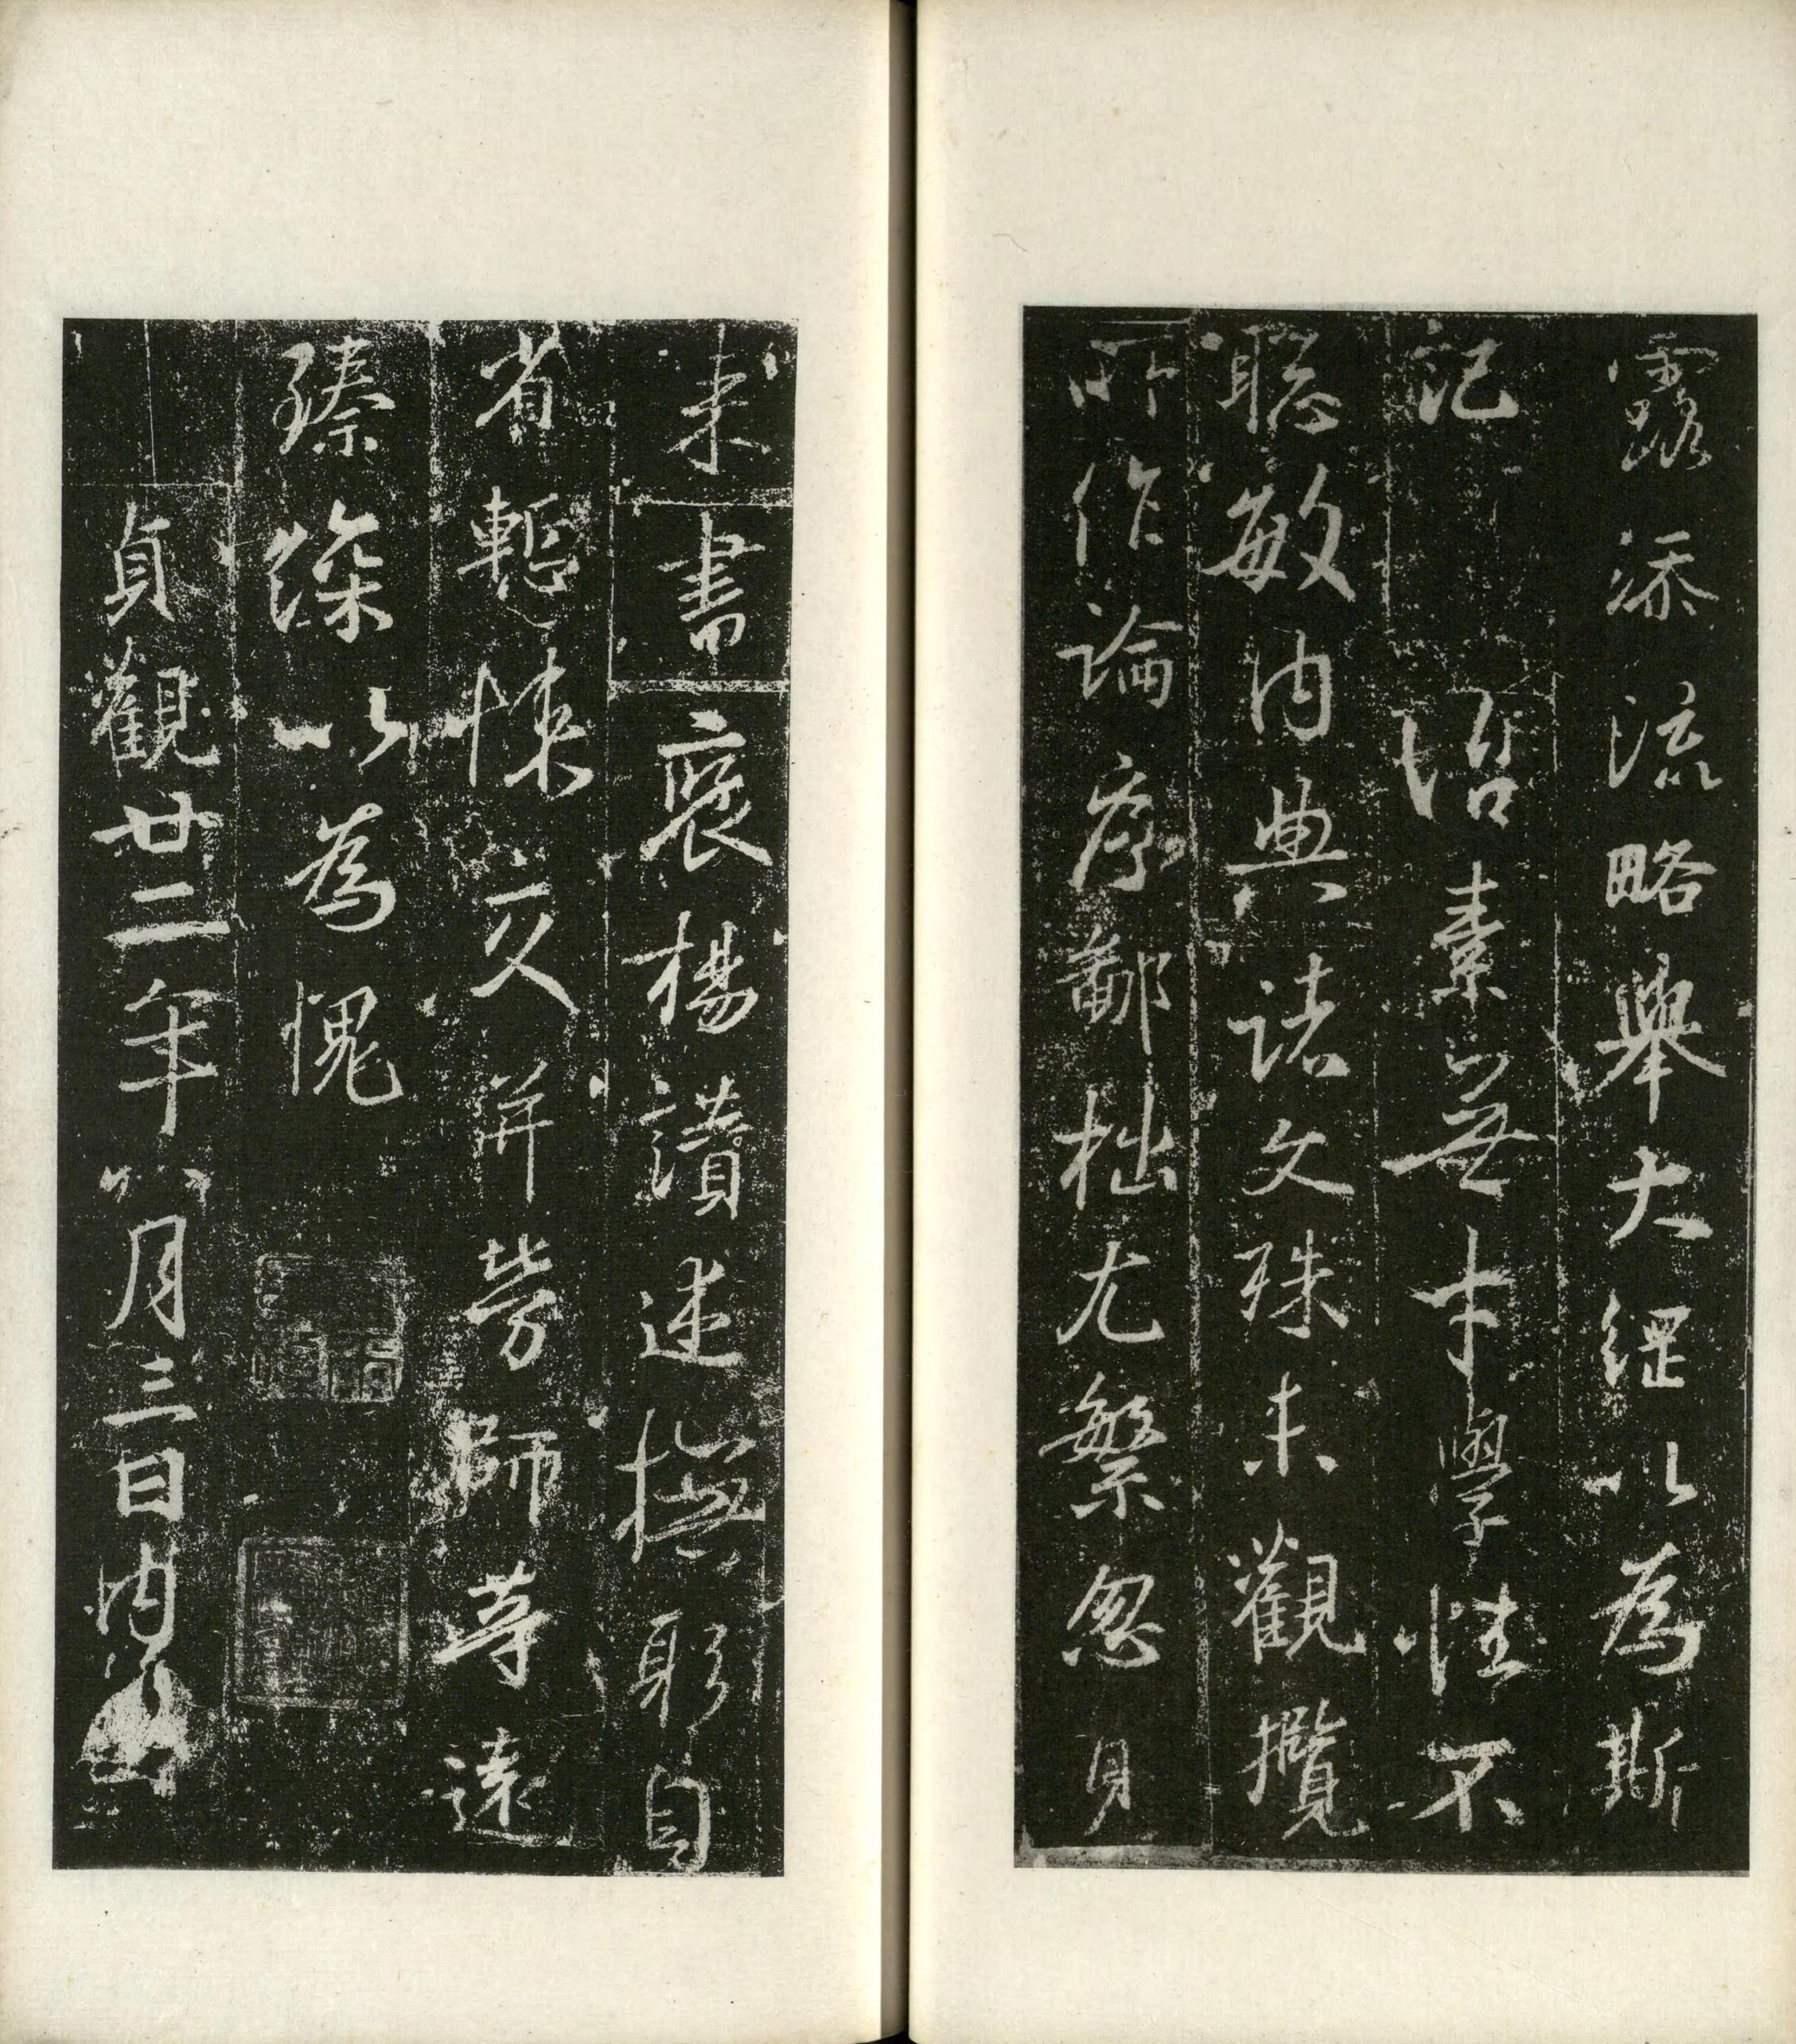 露添流略舉大綱以為斯
記
治素無才學性不
聡敏內典諸文殊未觀攬
所作論序鄙拙尤繁忽見
来書褒揚讃述撫躬自
省慙悚交并勞師等遠
臻深以為愧
貞觀廿二年八月三日內